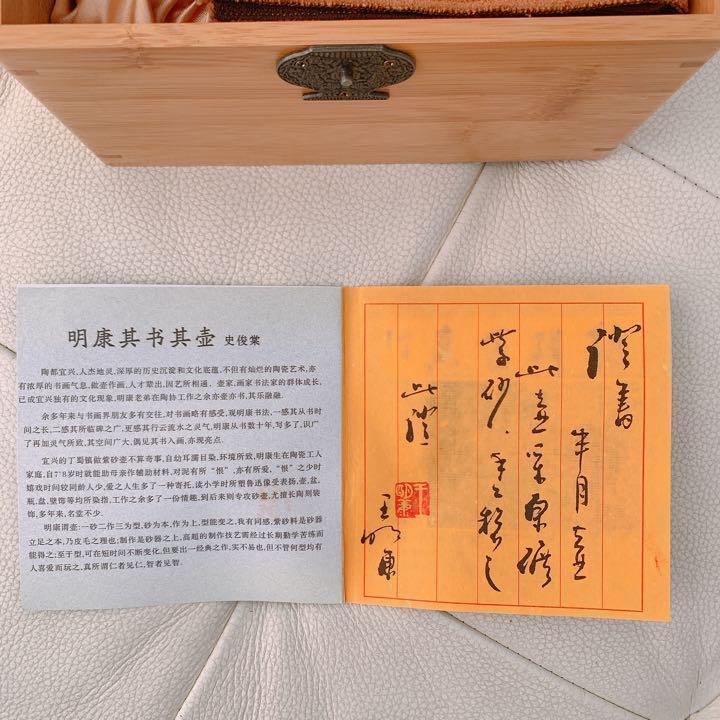 明康其书其壶 史俊棠
陶都宜兴,人杰地灵,深厚的历史沉淀和文化底蕴,不但有灿烂的陶瓷艺术,亦
有浓厚的书画气息,做壶作画,人才辈出,因艺所相通,壶家,画家书法家的群体成长,
已成宜兴独有的文化现象,明康老弟在陶协工作之余亦壶亦书,其乐融融。
余多年来与书画界朋友多有交往,对书画略有感受,观明康书法,一感其从书时
间之长,二感其所临碑之广,更感其行云流水之灵气,明康从书数十年,写多了,识广
了再加灵气所致,其空间广大,偶见其书入画,亦现亮点。
宜兴的丁蜀镇做紫砂壶不算奇事,自幼耳濡目染,环境所致,明康生在陶瓷工人
家庭,自7"8岁时就能助母亲作辅助材料,对泥有所"恨",亦有所爱,"恨"之少时
嬉戏时间较同龄人少,爱之人生多了一种寄托,读小学时所塑鲁迅像受表扬,壶,盆,
瓶,盘,壁饰等均所染指,工作之余多了一份情趣,到后来则专攻砂壶,尤擅长陶刻装
饰,多年来,名壶不少.
明康谓壶:一砂二作三为型,砂为本,作为上,型能变之,我有同感,紫砂料是砂器
立足之本,乃皮毛之理也;制作是砂器之上,高超的制作技艺需经过长期勤学苦练而
能得之;至于型,可在短时间不断变化,但要出一经典之作,实不易也,但不管何型均有
人喜爱而玩之,真所谓仁者见仁,智者见智.
半月壶
此壶采原矿
紫砂
此证
王明康